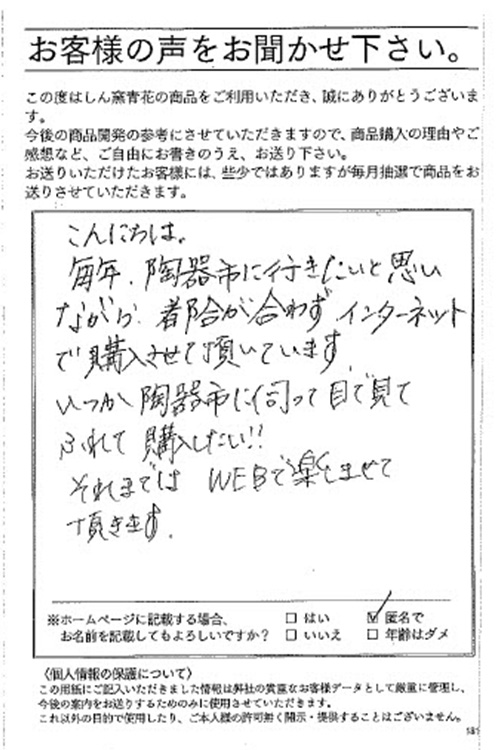 お客様の声をお聞かせ下さい。
この度はしん窯青花の商品をご利用いただき、誠にありがとうございま
す。
今後の商品開発の参考にさせていただきますので、商品購入の理由やご
感想など、ご自由にお書きのうえ、お送り下さい。
お送りいただけたお客様には、些少ではありますが毎月抽選で商品をお
送りさせていただきます。
こんにちは。
毎年、陶器市に行きたいと思い
ながら、都合が合わず インターネット
で購入させて頂いています
いつか陶器市に伺って目で見て
ふれて購入したい!!
それまでは WEBで楽しませて
頂きます。
※ホームページに記載する場合、 □ はい ☑ 匿名で
お名前を記載してもよろしいですか？ □ いいえ □ 年齢はダメ
〈個人情報の保護について〉
この用紙にご記入いただきました情報は弊社の貴重なお客様データとして厳重に管理し、
今後の案内をお送りするためのみに使用させていただきます。
これ以外の目的で使用したり、ご本人様の許可無く開示・提供することはございません。